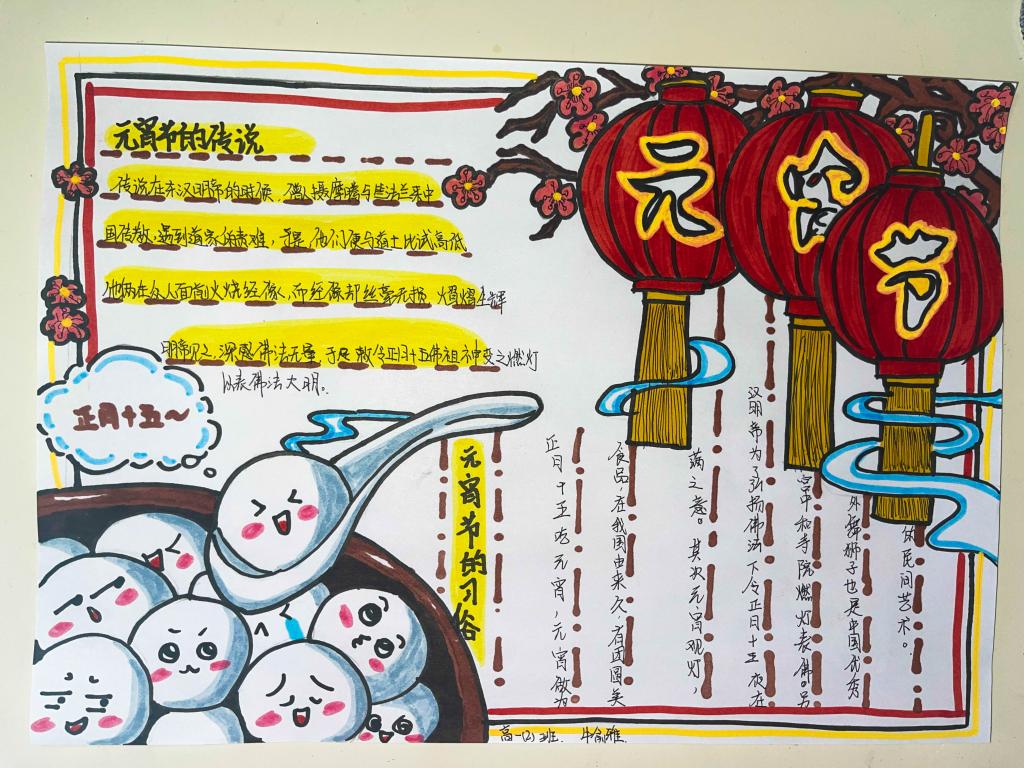 元宵节
元宵节的传说
传说在东汉明帝的时候,僧人摄摩腾与竺法兰来中
国传教,遇到道家的责难,于是,他们便与道士比试高低
他俩在众人面前火烧经像,而经像却丝毫无损,熠熠生辉
明帝见之,深感佛法无量,于是敕令正月十五佛祖神变之燃灯
以表佛法大明。
正月十五~
元宵节的习俗
正月十五吃元宵,元宵做为
食品,在我国由来久,有团圆美
满之意。其次元宵观灯,
汉明帝为了弘扬佛法下令正月十五夜在
宫中和寺院燃灯表佛。另
外舞狮子也是中国优秀
民间艺术。
高一(2)班